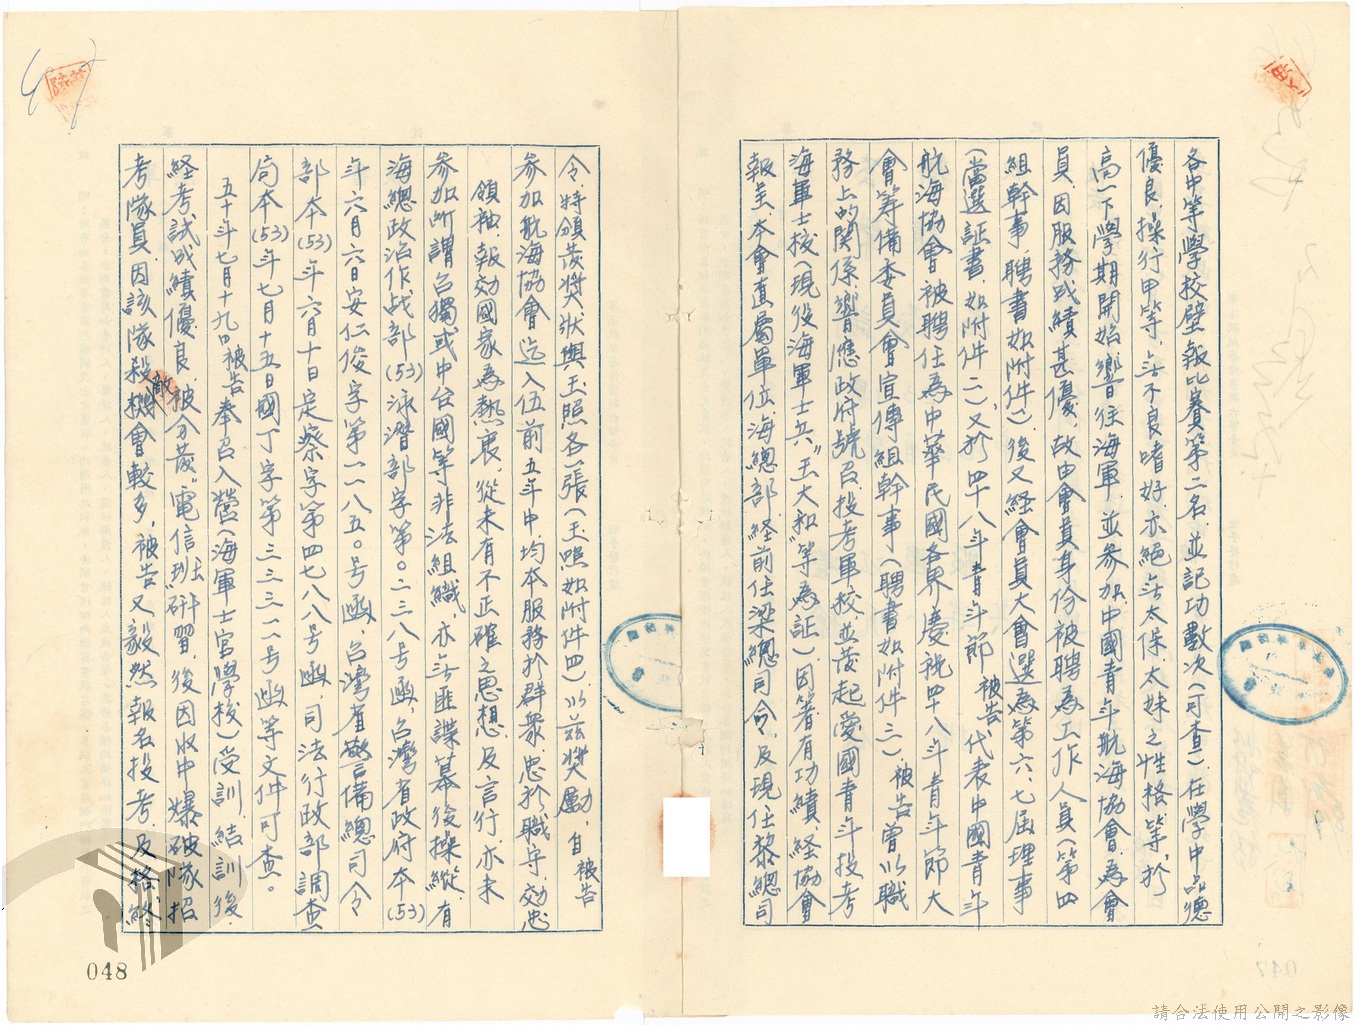 各中等學校壁報比賽第二名、並記功數次(可查)、在學中品德
優良、操行甲等、無不良嗜好、亦絕無太保、太妹之性格等、於
高一下學期開始嚮往海軍、並參加中國青年航海協會為會
員、因服務成績甚優、故由會員身份被聘為工作人員(第四
組幹事、聘書如附件一)、後又経會員大會選為第六、七屆理事
(當選証書、如附件二)、又於四十八年青年節被告代表中國青年
航海協會被聘任為中華民國各界慶祝四十八年青年節大
會籌備委員會宣傳組幹事(聘書如附件三)、被告曾以職
務上的關係、響應政府號召、投考軍校、並發起愛國青年投考
海軍士校(現役海軍士兵"王大和"等為証)因著有功績、経協會
報呈、本會直屬單位、海總部、経前任梁總司令及現任黎總司
令、特頒發獎狀與玉照各一張(玉照如附件四)以茲獎勵、自被告
參加航海協會迄入伍前五年中均本服務於群衆、忠於職守、効忠
領袖、報効國家為熱衷、從未有不正確之思想、及言行亦未
參加所謂台獨或中台國等非法組織、亦無匪諜幕後操縱、有
海總政治作战部(53)泳潛部字第0二三八号函、台灣省政府本(53)
年六月六日安仁俊字第一一八五0号函、台灣省警備總司令
部本(53)年六月十日定察字第四七八八号函、司法行政部調查
局本(53)年七月十五日國丁字第三三三一一号函等文件可查。
五十年七月十九日被告奉召入營(海軍士官學校)受訓、結訓後、
経考試成績優良、被分發"電信班"研習、後因水中爆破隊招
考隊員、因該隊殺敵機會較多、被告又毅然報名投考、及格、終、
048
請合法使用公開之影像